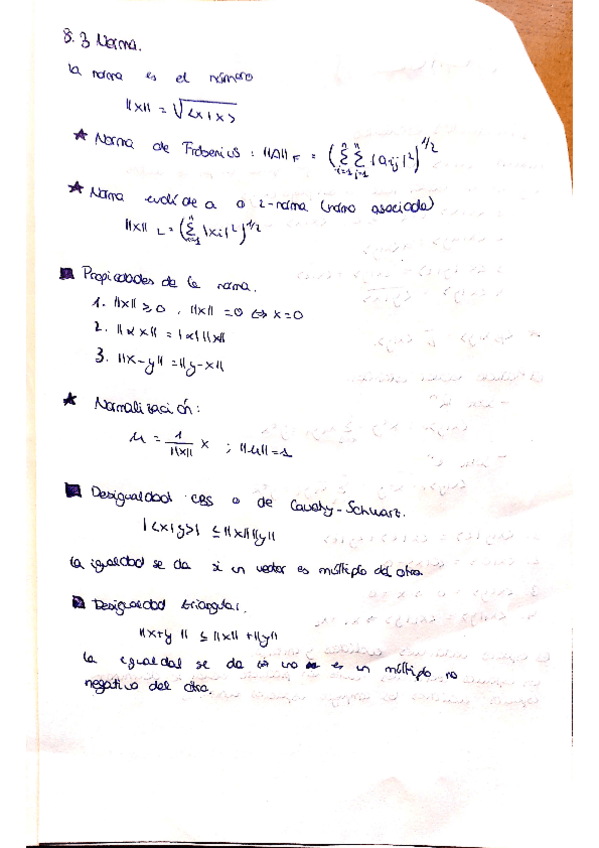 8.3 Norma.
La norma es el número
||x|| = √<x|x>
★ Norma de Fröbenius : ||A||F = (Σ i=1 n Σ j=1 n |aij|²)^1/2
★ Norma euclídea o 2-norma (norma asociada)
||x|| 2 = (Σ i=1 n |xi|²)^1/2
Propiedades de la norma.
1. ||x|| ≥ 0 , ||x|| = 0 ⇔ x = 0
2. ||αx|| = |α| ||x||
3. ||x-y|| = ||y-x||
★ Normalización:
u = 1/||x|| x ; ||u|| = 1
Desigualdad CBS o de Cauchy-Schwarz.
|<x|y>| ≤ ||x|| ||y||
La igualdad se da si un vector es múltiplo del otro.
Desigualdad triangular.
||x+y|| ≤ ||x|| + ||y||
La igualdad se da uno es un múltiplo no
negativo del otro.